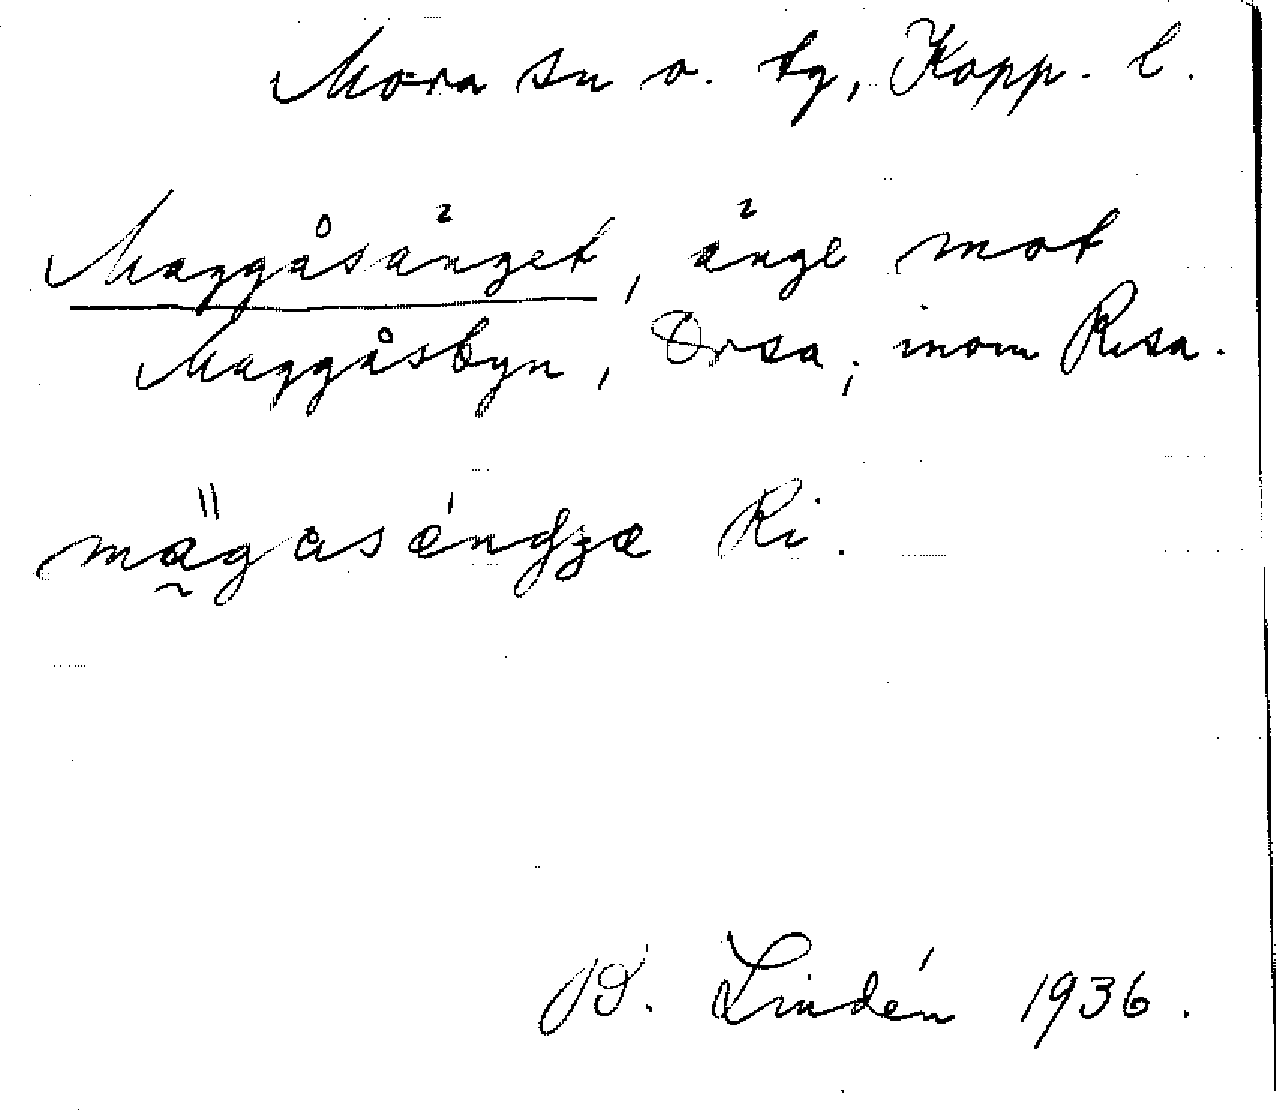 Mora sn o. tg, Kopp. l.
Maggåsänget, änge mot
Maggåsbyn, Orsa; inom Risa.
mägaséndʒæ Ri.
B. Lindén 1936.